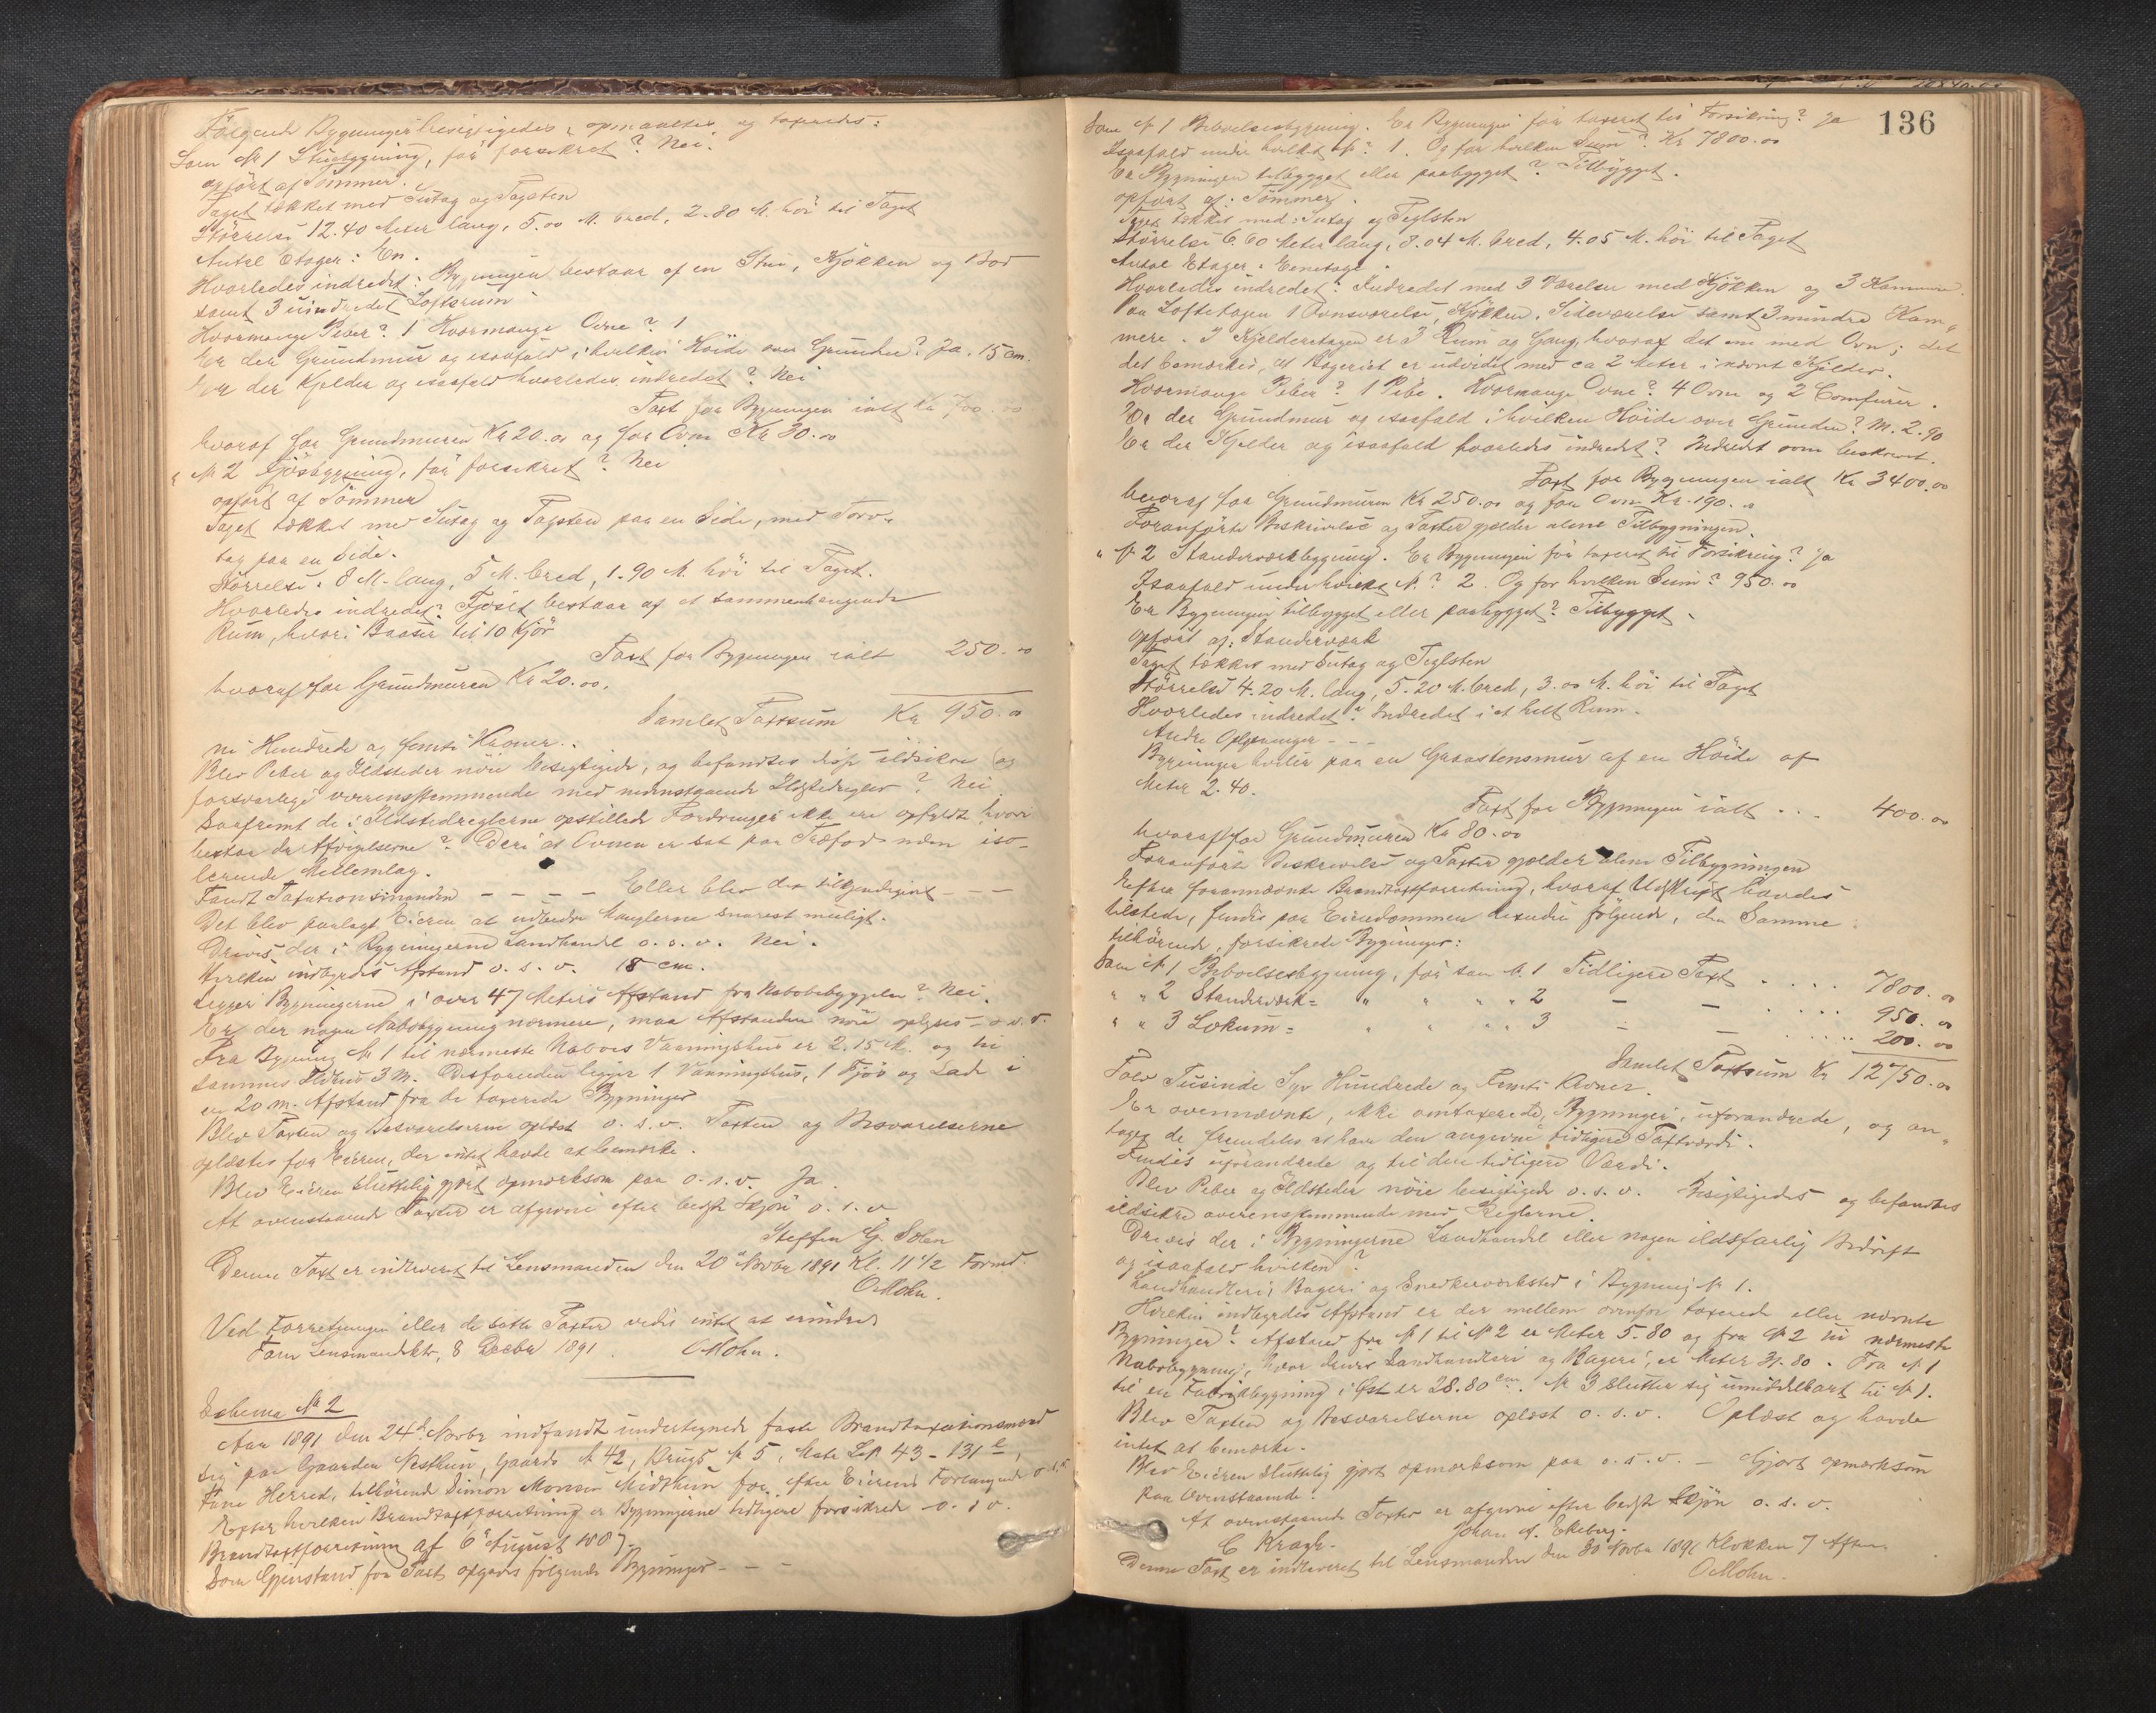 Følgende Bygninger besigtigedes, opmaaltes og taxeredes:
Som № 1 Stuebygning, før forsikret? Nei.
opført af Tømmer.
Taget tækket med Sutag og Tagsten
Størrelse 12.40 Meter lang, 5.00 M. bred, 2.80 M. høi til Taget
Antal Etager: En.
Hvorledes indredet: Bygningen bestaar af en Stue, Kjøkken og Bod
samt 3 uindredet Loftsrum
Hvormange Peber? 1 Hvormange Ovne? 1
Er der Grundmur og isaafald i hvilken Høide over Grunden? Ja. 15 cm.
Er der Kjelder og isaafald hvorledes indredet? Nei
Taxt for Bygningen ialt Kr 700.00
hvoraf for Grundmuren Kr 20.00 og for Ovne Kr 30.00
" № 2 Fjøsbygning, før forsikret? Nei
opført af Tømmer
Taget tækket med Sutag og Tagsten paa en Side, med Torv-
tag paa en Side.
Størrelse: 8 M. lang, 5 M. bred, 1.90 M. høi til Taget.
Hvorledes indredet? Fjøset bestaar af et sammenhængende
Rum, hvori Baase til 10 Kjør
Taxt for Bygningen ialt 250.00
hvoraf for Grundmuren Kr 20.00.
Samlet Taxtsum Kr 950.00
ni Hundrede og femti Kroner.
Blev Peber og Ildsteder nøie besigtigede, og befandtes disse ildsikre og
forsvarlige overensstemmende med nedenstaaende Ildstedregler? Nei
Saafremt de i Ildstedreglerne opstillede Fordringer ikke ere opfyldt, hvori
bestaa da Afvigelserne? Deri at Ovnen er sat paa Træfod uden iso-
lerende Mellemlag.
Fandt Taxationsmænden – – – – Eller blev det tilkjendegivet – – –
Det blev paalagt Eieren at udbedre Manglerne snarest muligt.
Drives der i Bygningerne Landhandel o. s. v. Nei.
Hvilken indbyrdes Afstand o. s. v. 18 cm.
Ligger Bygningerne i over 47 Meters Afstand fra Nabobebyggelse? Nei.
Er der nogen Nabobygning nærmere, maa Afstanden nøie oplyses – o. s. v.
Fra Bygning № 1 til nærmeste Nabos Vaaningshus er 2.15 M. og til
sammes Ildhus 3 M. Desforuden ligger 1 Vaaningshus, 1 Fjøs og Lade i
en 20 m. Afstand fra de taxerede Bygninger
Blev Taxten og Besvarelserne oplæst o. s. v. Taxten og Besvarelserne
oplæstes for Eieren, der intet havde at bemærke.
Blev Eieren sluttelig gjort opmærksom paa o. s. v. Ja.
At ovenstaaende Taxter er afgivne efter bedste Skjøn o. s. v
Steffen G.
Denne Taxt er indleveret til Lensmanden den 20de Novbr 1891 Kl. 11 1/2 Formd.
OMohn.
Ved Forretningen eller de satte Taxter vides intet at erindre
Fane Lensmandsktr, 8 Decbr 1891. OMohn.
Schema № 2
Aar 1891 den 24de Novbr indfandt undertegnede faste Brandtaxationsmænd
sig paa Gaarden Nesthun, Gaards № 42, Brugs № 5, Matr Lp. 43 – 131 e,
Fane Herred, tilhørende Simon Monsen Midthun for, efter Eierens Forlangende o.s.v.
Efter hvilken Brandtaxtforretning er Bygningerne tidligere forsikrede o. s v.
Brandtaxtforretning af 6te August 1887
Som Gjenstand for Taxt opgaves følgende Bygninger – – –
136
Som № 1 Beboelsesbygning. Er Bygningen før taxeret til Forsikring? Ja
Isaafald under hvilket №? 1. Og for hvilken Sum? Kr 7800.00
Er Bygningen tilbygget eller paabygget? Tilbygget.
opført af: Tømmer.
Taget tækket med: Sutag og Teglsten
Størrelse 6.60 Meter lang, 8.04 M. bred, 4.05 M. høi til Taget
Antal Etager: Eenetage.
Hvorledes indredet? Indredet med 3 Værelser med Kjøkken og 3 Kammere.
Paa Loftetagen 1 Ovnsværelse, Kjøkken, Sideværelse samt 3 mindre Kam-
mere. I Kjelderetagen er 3 Rum og Gang, hvoraf det ene med Ovn; det
det bemærkes, at Bageriet er udvidet med ca 2 Meter i nævnt Kjelder.
Hvormange Peber? 1 Pibe. Hvormange Ovne? 4 Ovne og 2 Comfurer.
Er der Grundmur og isaafald i hvilken Høide over Grunden? M. 2.90
Er der Kjelder og isaafald hvorledes indredet? Indredet som beskrevet.
Taxt for Bygningen ialt Kr 3400.00
hvoraf for Grundmuren Kr 250.00 og for Ovne Kr. 190.00
Foranførte Beskrivelse og Taxter gjelder alene Tilbygningen.
" № 2 Standerværkbygning. Er Bygningen før taxeret til Forsikring? Ja
Isaafald under hvilket №? 2. Og for hvilken Sum? 950.00
Er Bygningen tilbygget eller paabygget? Tilbygget.
Opført af: Standerværk
Taget tækket med Sutag og Teglsten
Størrelse 4.20 M. lang, 5.20 M. bred, 3.00 M. høi til Taget
Hvorledes indredet? Indredet i et helt Rum.
Andre Oplysninger – – –
Bygningen hviler paa en Graastensmur af en Høide af
Meter 2.40.
Taxt for Bygningen ialt . . . 400.00
hvoraf for Grundmuren Kr 80.00
Foranførte Beskrivelse og Taxter gjælder alene Tilbygningen
Efter forannævnte Brandtaxtforretning, hvoraf Udskrift havdes
tilstede, findes paa Eiendommen desuden følgende, den Samme
tilhørende, forsikrede Bygninger:
Som № 1 Beboelsesbygning, før som № 1 Tidligere Taxt . . . . 7800.00
" " 2 Standerværk= " " " " 2 – – . . . . 950.00
" " 3 Lokum= " " " " 3 – – . . . . 200.00
Samlet Taxtsum Kr 12750.00
Tolv Tusinde Syv Hundrede og Femti Kroner.
Er ovennævnte, ikke omtaxerede, Bygninger, uforandrede, og an-
tages de fremdeles at have den angivne tidligere Taxtværdi.
Findes uforandrede og til den tidligere Værdi.
Blev Peber og Ildsteder nøie besigtigede o. s. v. Besigtigedes og befandtes
ildsikre overensstemmende med Reglerne.
Drives der i Bygningerne Landhandel eller nogen ildsfarlig Bedrift
og isaafald hvilken?
Landhandleri, Bageri og Snedkerværksted i Bygning № 1.
Hvilken indbyrdes Afstand er der mellem ovenfor taxerede eller nævnte
Bygninger? Afstand fra № 1 til № 2 er Meter 5.80 og fra № 2 til nærmeste
Nabobygning, hvor drives Landhandleri og Bageri, er Meter 31.80. Fra № 1
til en Fabrikbygning i Øst er 28.80 cm. № 3 slutter sig umiddelbart til № 1.
Blev Taxten og Besvarelserne oplæst o. s. v. Oplæst og havde
intet at bemærke.
Blev Eieren sluttelig gjort opmærksom paa o. s. v. – Gjort opmærksom
paa Ovenstaaende.
At ovenstaaende Taxter er afgivne efter bedste Skjøn o. s. v.
C Kragh. Johan A. Ekeberg.
Denne Taxt er indleveret til Lensmanden den 30 Novbr 1891 Klokken 7 Aften.
OMohn.